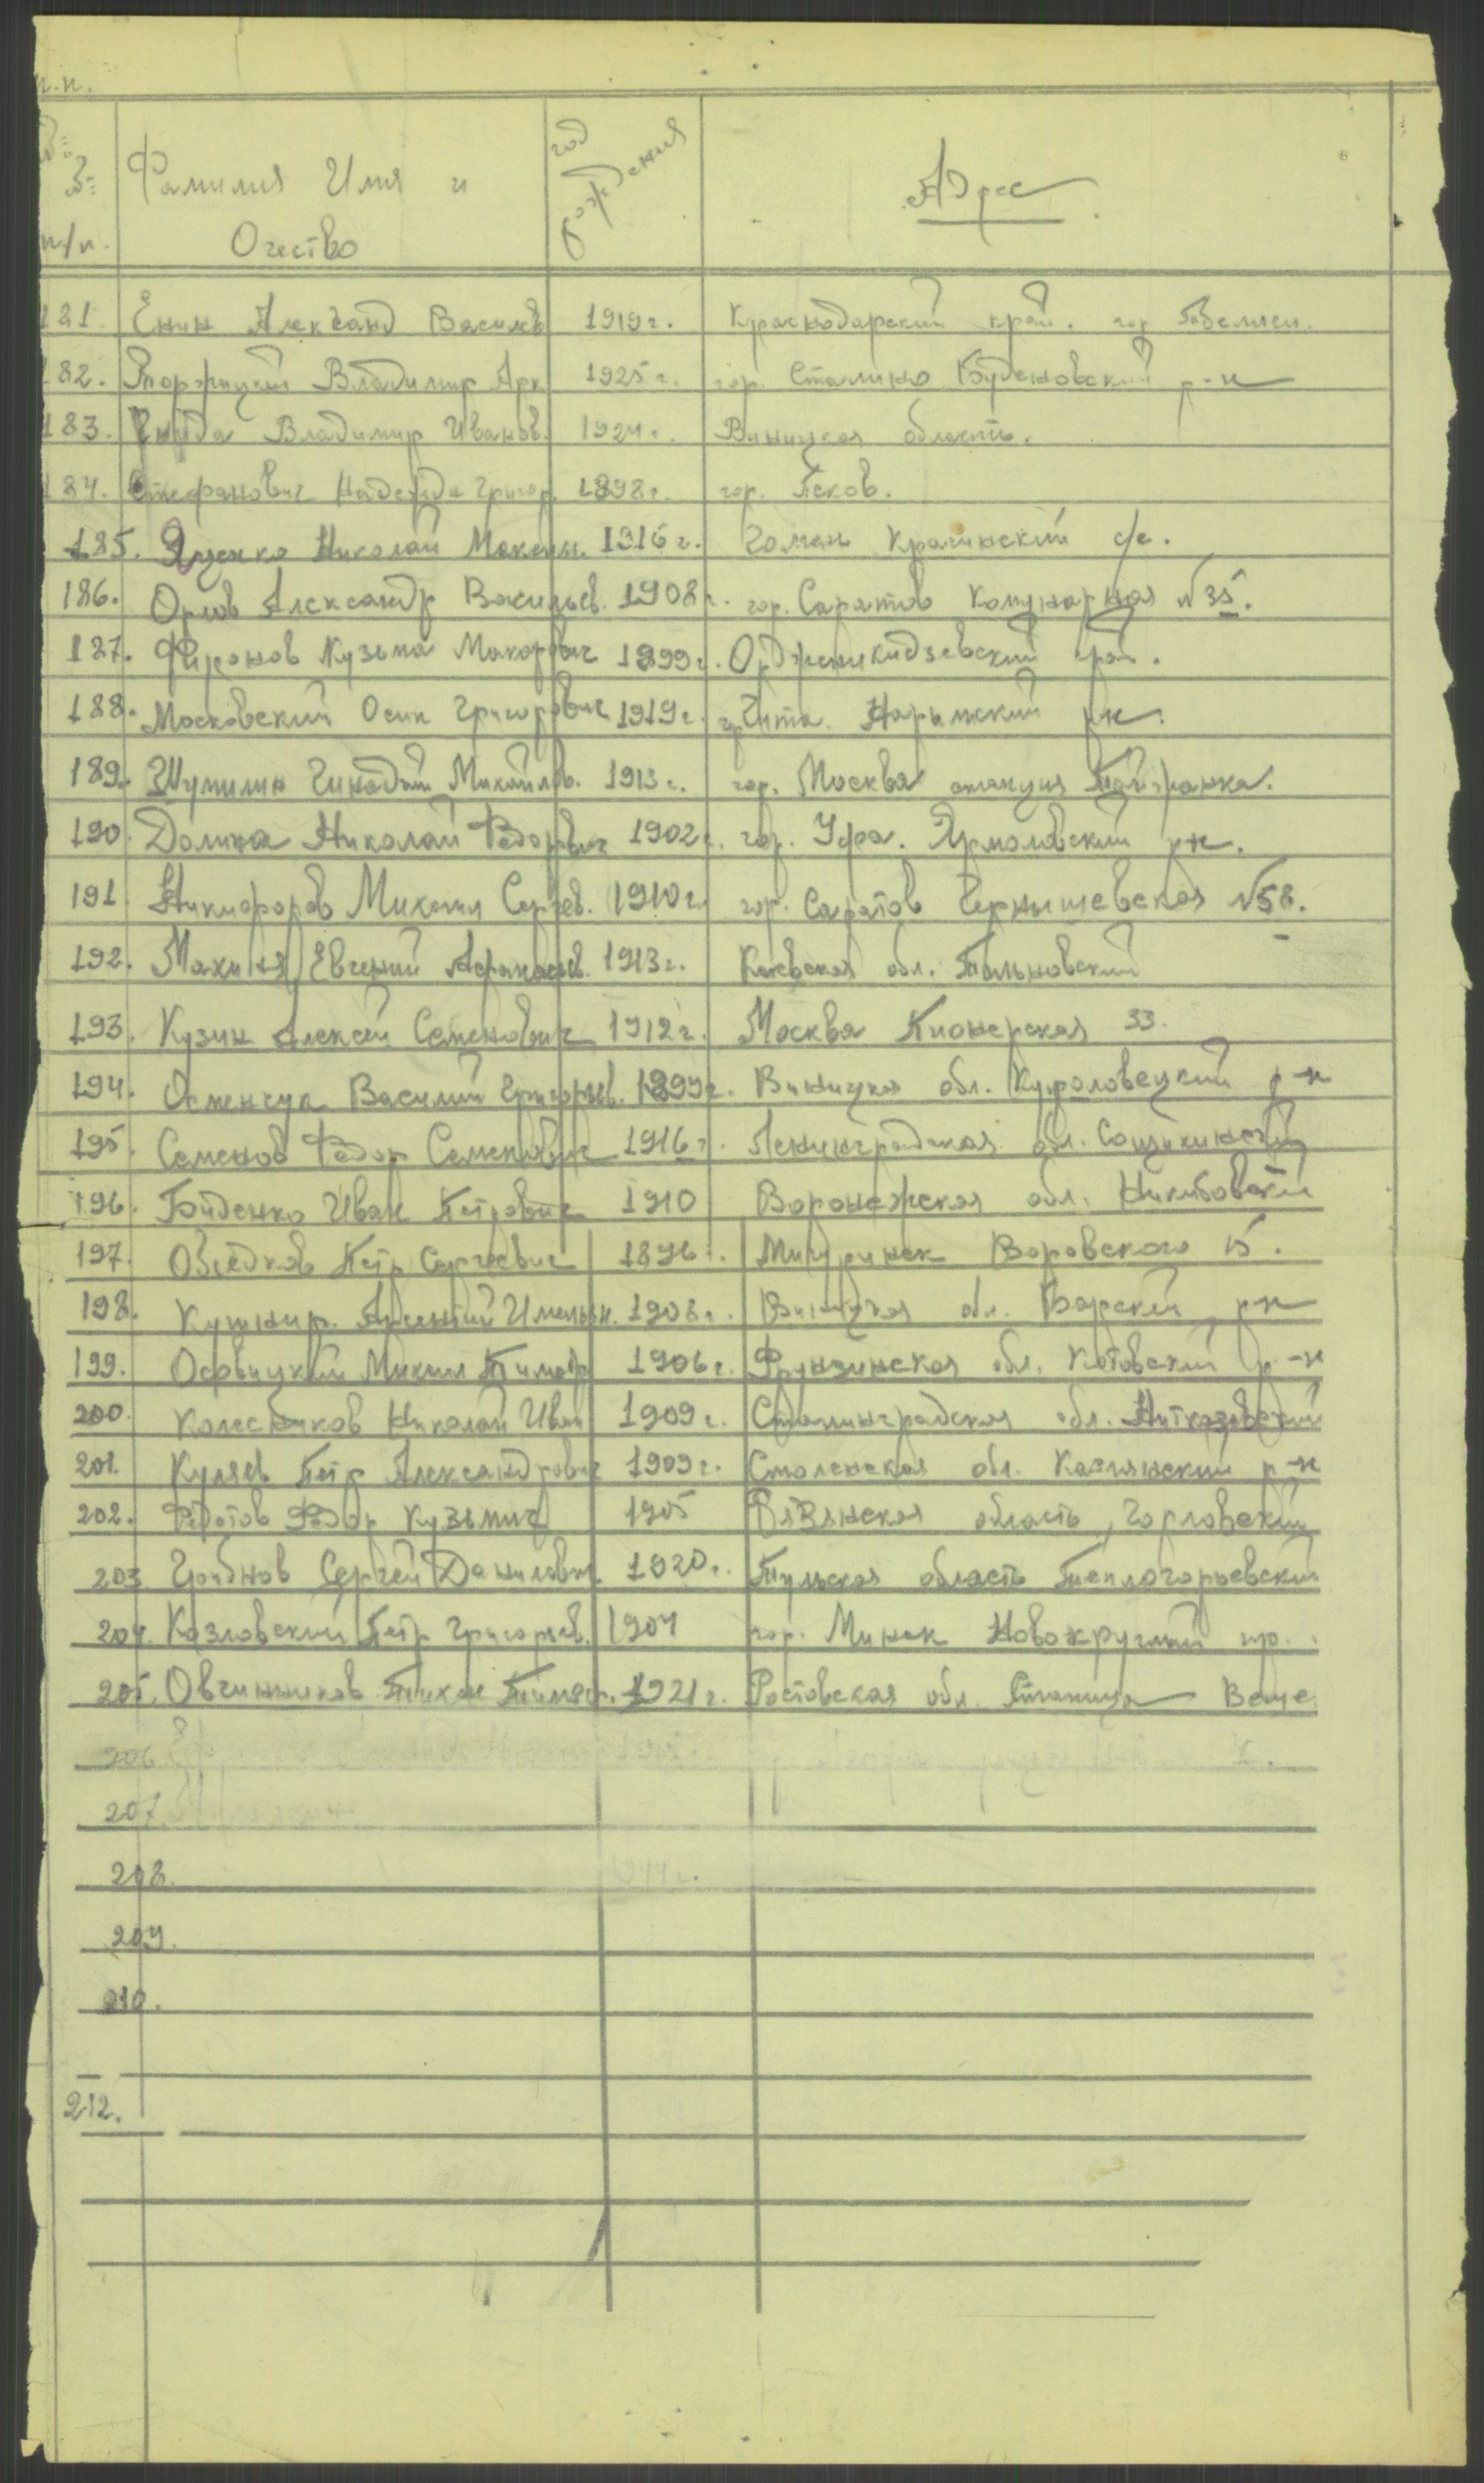 п.п.
п/п. Фамилия Имя и Отчество год рождения Адрес
181. Енин Александ Василев 1919г. Краснодарский край. гор
182. Владимир Арк 1925г. гор. Сталино Будёновский р-н
183. Владимир Иванов. 1924г. Виницкая область.
184. Стефанович Надежда Григор. 1898г. гор. Псков.
185. Яценко Николай Максим. 1916г. Гомель Крагинский с/с.
186. Орлов Александр Васильев. 1908г. гор. Саратов Комунарная №35.
187. Фиронов Кузьма Макорович 1899г. Орджоникидзевский край.
188. Московский Осип Григорович 1919г. гор Чита. Нарымский рн.
189. Шумилин Гинадий Михайлов. 1913г. гор. Москва станция
190. Долина Николай Фёдорович 1902г. гор. Уфа. Ярмоловский рн.
191. Никифоров Михаил Сергев. 1910г. гор. Саратов Чернышевская №58.
192. Махиня Евгений Афанасьев. 1913г. Киевская обл. Тальновский
193. Кузин Алексей Семенович 1912г. Москва Пионерская 33.
194. Осменчук Василий Григорьев. 1899г. Виницкая обл. р-н
195. Семенов Фёдор Семенович 1916г. Ленинградская обл.
196. Гойденко Иван Петрович 1910 Воронежская обл.
197. Объедков Петр Сергеевич 1896г. Мичуринск Воровского 15.
198. Кушнир. Арсентий Имельян. 1908г. Виницкая обл. Барский рн
199. Осовицкий Михаил Тимоф 1906г. Фрунзинская обл. Котовский р-н
200. Колесников Николай Иван 1909г. Сталинградская обл.
201. Куляев Петр Александрович 1909г. Смоленская обл. Каснянский р-н
202. Федотов Фёдор Кузьмич 1905 Рязянская область, Горловский
203. Грибнов Сергей Данилович 1920г. Тульская область Теплогорьевский
204. Козловский Петр Григорьев. 1904 гор. Минск Новокруглый
205. Овчинников Тихон Тимоф. 1921г. Ростовская обл. Станица Веше
206.
207.
208. 1944г.
209.
210.
212.